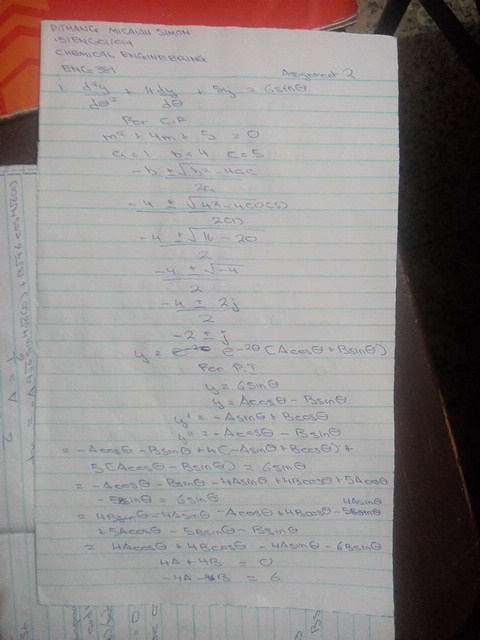 DITMANGE MICAIAH SIMON
CHEMICAL ENGINEERING
ENG 381
Assignment 2
1. d²y/dθ² + 4dy/dθ + 5y = 6sinθ
For C.F
m² + 4m + 5 = 0
a=1 b=4 c=5
-b ± √b² - 4ac
2a
-4 ± √4² - 4(1)(5)
2(1)
-4 ± √16 - 20
2
-4 ± √-4
2
-4 ± 2j
2
-2 ± j
y = e^-2θ (Acosθ + Bsinθ)
For P.I
y = 6sinθ
y = Acosθ - Bsinθ
y' = -Asinθ + Bcosθ
y'' = -Acosθ - Bsinθ
= -Acosθ - Bsinθ + 4(-Asinθ + Bcosθ) +
5(Acosθ - Bsinθ) = 6sinθ
= -Acosθ - Bsinθ - 4Asinθ + 4Bcosθ + 5Acosθ
- 5Bsinθ = 6sinθ
+ 5Acosθ - 5Bsinθ - Bsinθ
= 4Acosθ + 4Bcosθ - 4Asinθ - 6Bsinθ
4A + 4B = 0
-4A - 6B = 6